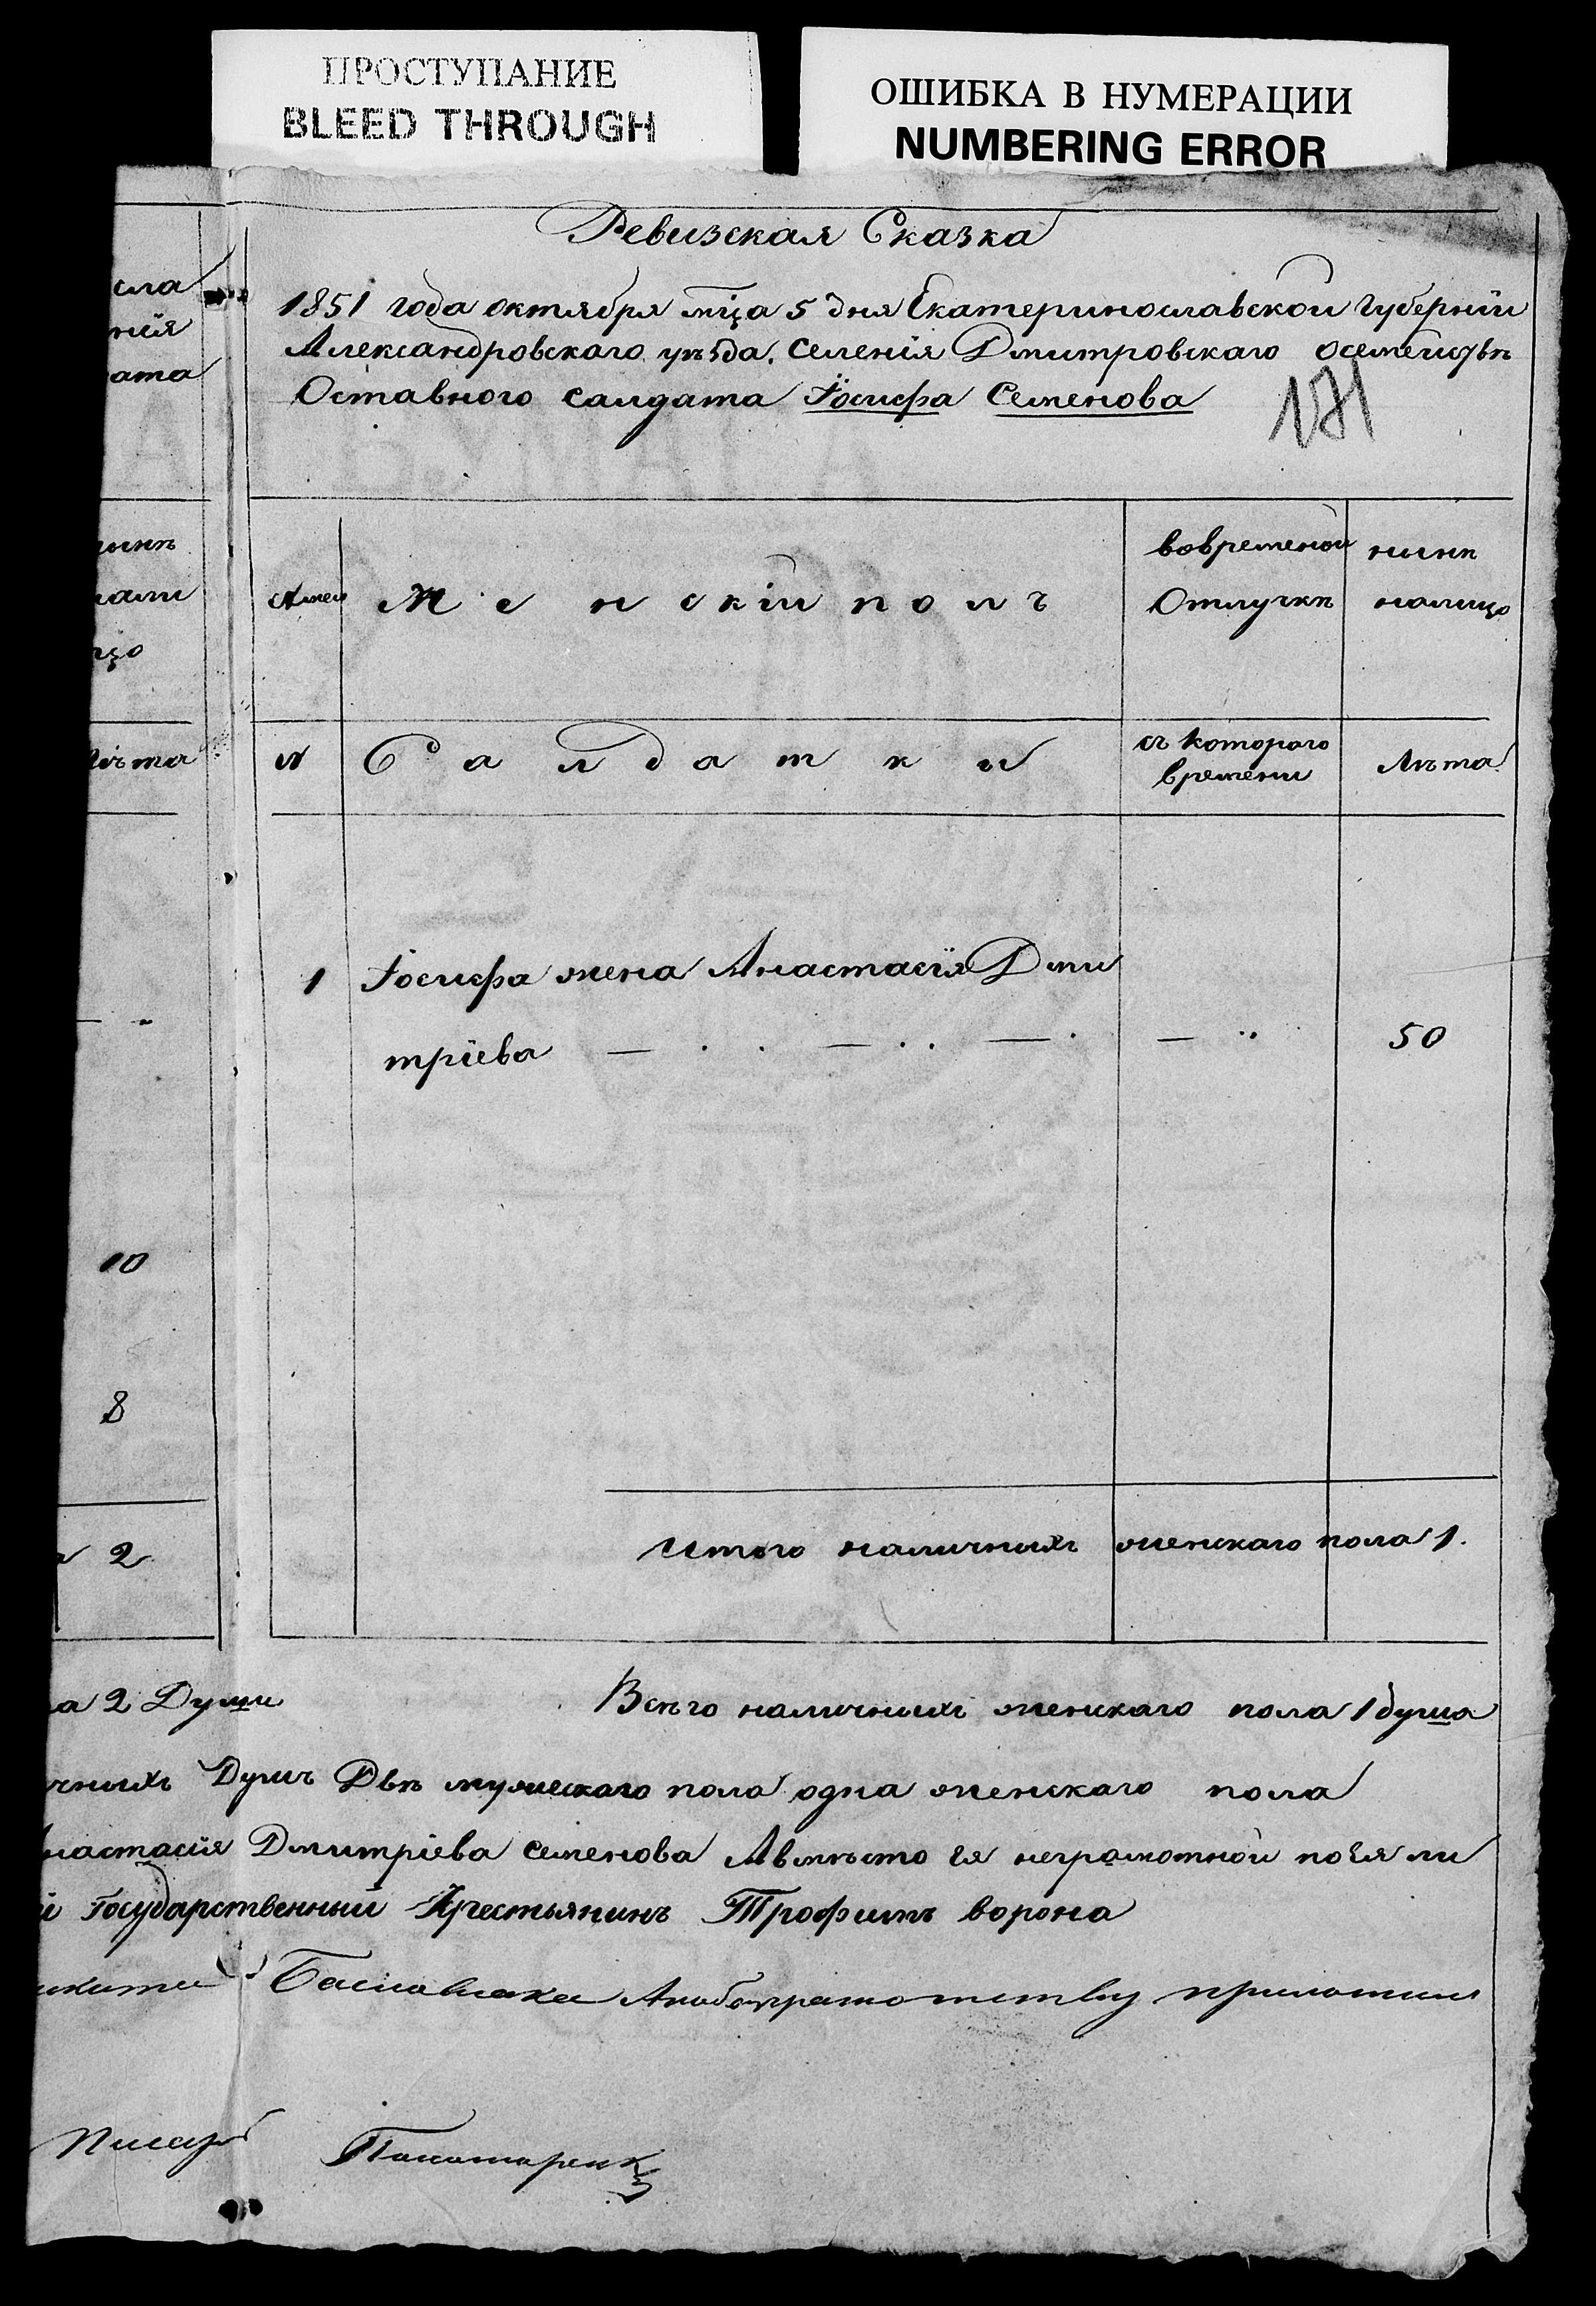 ПРОСТУПАНИЕ
BLEED THROUGH
ОШИБКА В НУМЕРАЦИИ
NUMBERING ERROR
Ревизская Сказка
1851 года октября мца 5 дня Екатеринославской губернїи
Александровскаго уѣзда. селенїя Дмитровскаго осемействѣ
Оставного салдата Іосифа Семенова
171
сла
нїя
ата
Женскїй полъ
вовременой
Отлучкѣ
нынѣ
налицо
цо
лѣта
№
Салдатки
съ котораго
времени
Лѣта
1 Іосифа жена Анастасїя Дми
трїева — . . — . . — . — .. 50
10
8
2
Итого наличныхъ женскаго пола 1.
а 2 Души
Всѣго наличныхъ женскаго пола 1 душа
чныхъ Душъ Двѣ мужескаго пола одна женскаго пола
настасїя Дмитрїева Семенова Авмѣсто ея неграмотной поея
й Государственный Крестьянинъ Трофимъ ворона
приложил
Писарь Пономаренко